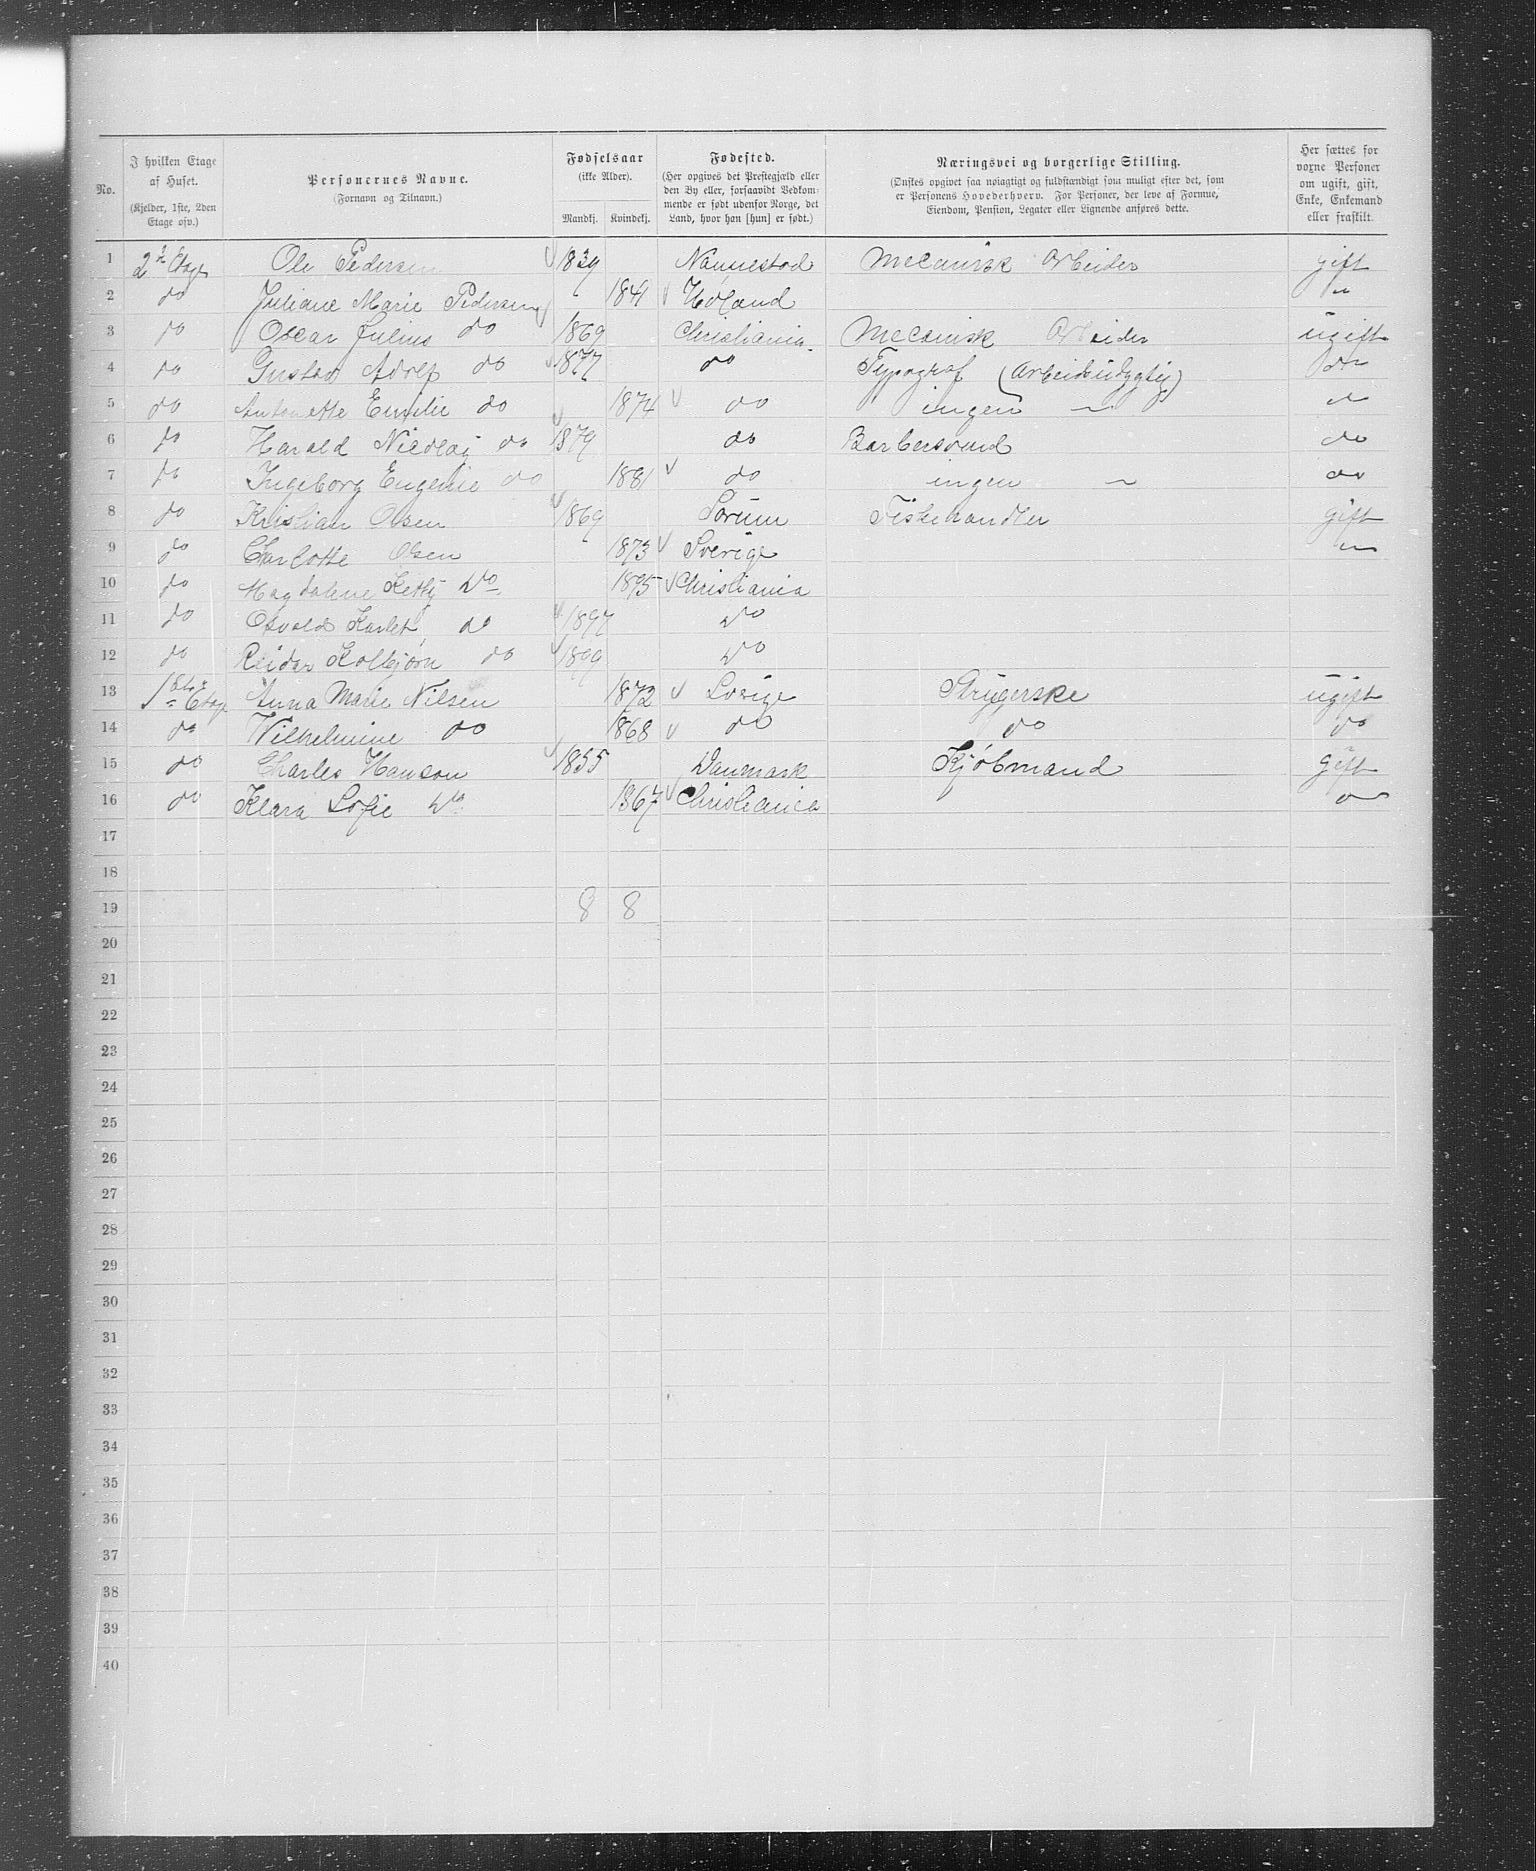 No.
I hvilken Etage af Huset. (Kjelder, 1ste, 2den Etage osv.)
Personernes Navne. (Fornavn og Tilnavn.)
Fødselsaar (ikke Alder). Mandkj. Kvindekj.
Fødested. (Her opgives det Prestegjæld eller den By eller, forsaavidt Vedkommende er født udenfor Norge, det Land, hvor han [hun] er født.)
Næringsvei og borgerlige Stilling. (Ønskes opgivet saa nøiagtigt og fuldstændigt som muligt efter det, som er Personens Hovederhverv. For Personer, der leve af Formue, Eiendom, Pension, Legater eller Lignende anføres dette.
Her sættes for voxne Personer om ugift, gift, Enke, Enkemand eller fraskilt.
1 2 Etage Ole Pedersen 1839 Nannestad Mecanisk Arbeider gift
2 do Juliane Marie Pedersen 1841 Høland
3 do Oscar Julius do 1869 Christiania Mecanisk Arbeider ugift
4 do Gustav Adolf do 1877 do Typograf (Arbeidsudygtig) do
5 do Antonette Emilie do 1874 do ingen do
6 do Harald Nicolaj do 1879 do Barbersvend do
7 do Ingeborg Eugenie do 1881 do ingen do
8 do Kristian Olsen 1869 Sørum Fiskehandler gift
9 do Charlotte Olsen 1873 Sverige
10 do Magdalene Ketty Do 1895 Christiania
11 do Osvald Karlet do 1897 Do
12 do Reidar Kolbjørn do 1899 Do
13 1ste Etage Anna Marie Nilsen 1872 Sverige Strygerske ugift
14 do Wilhelmine do 1868 do do do
15 do Charles Hanson 1855 Danmark Kjøbmand gift
16 do Klara Sofie Do 1867 Christiania
17
18
19 8 8
20
21
22
23
24
25
26
27
28
29
30
31
32
33
34
35
36
37
38
39
40